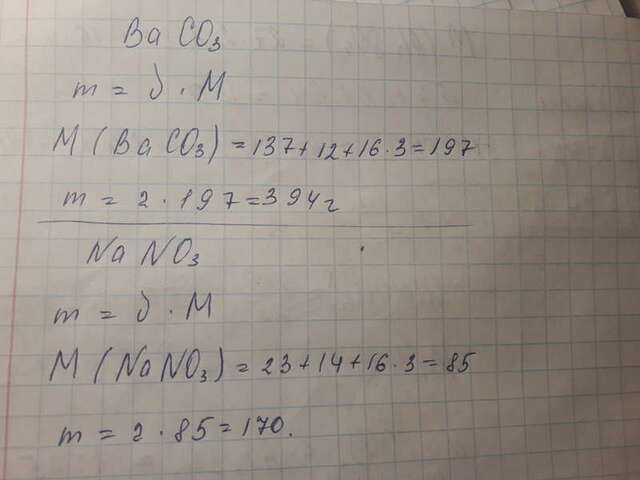 BaCO₃
m = ν · M
M (BaCO₃) = 137 + 12 + 16 · 3 = 197
m = 2 · 197 = 394 г
NaNO₃
m = ν · M
M (NaNO₃) = 23 + 14 + 16 · 3 = 85
m = 2 · 85 = 170.